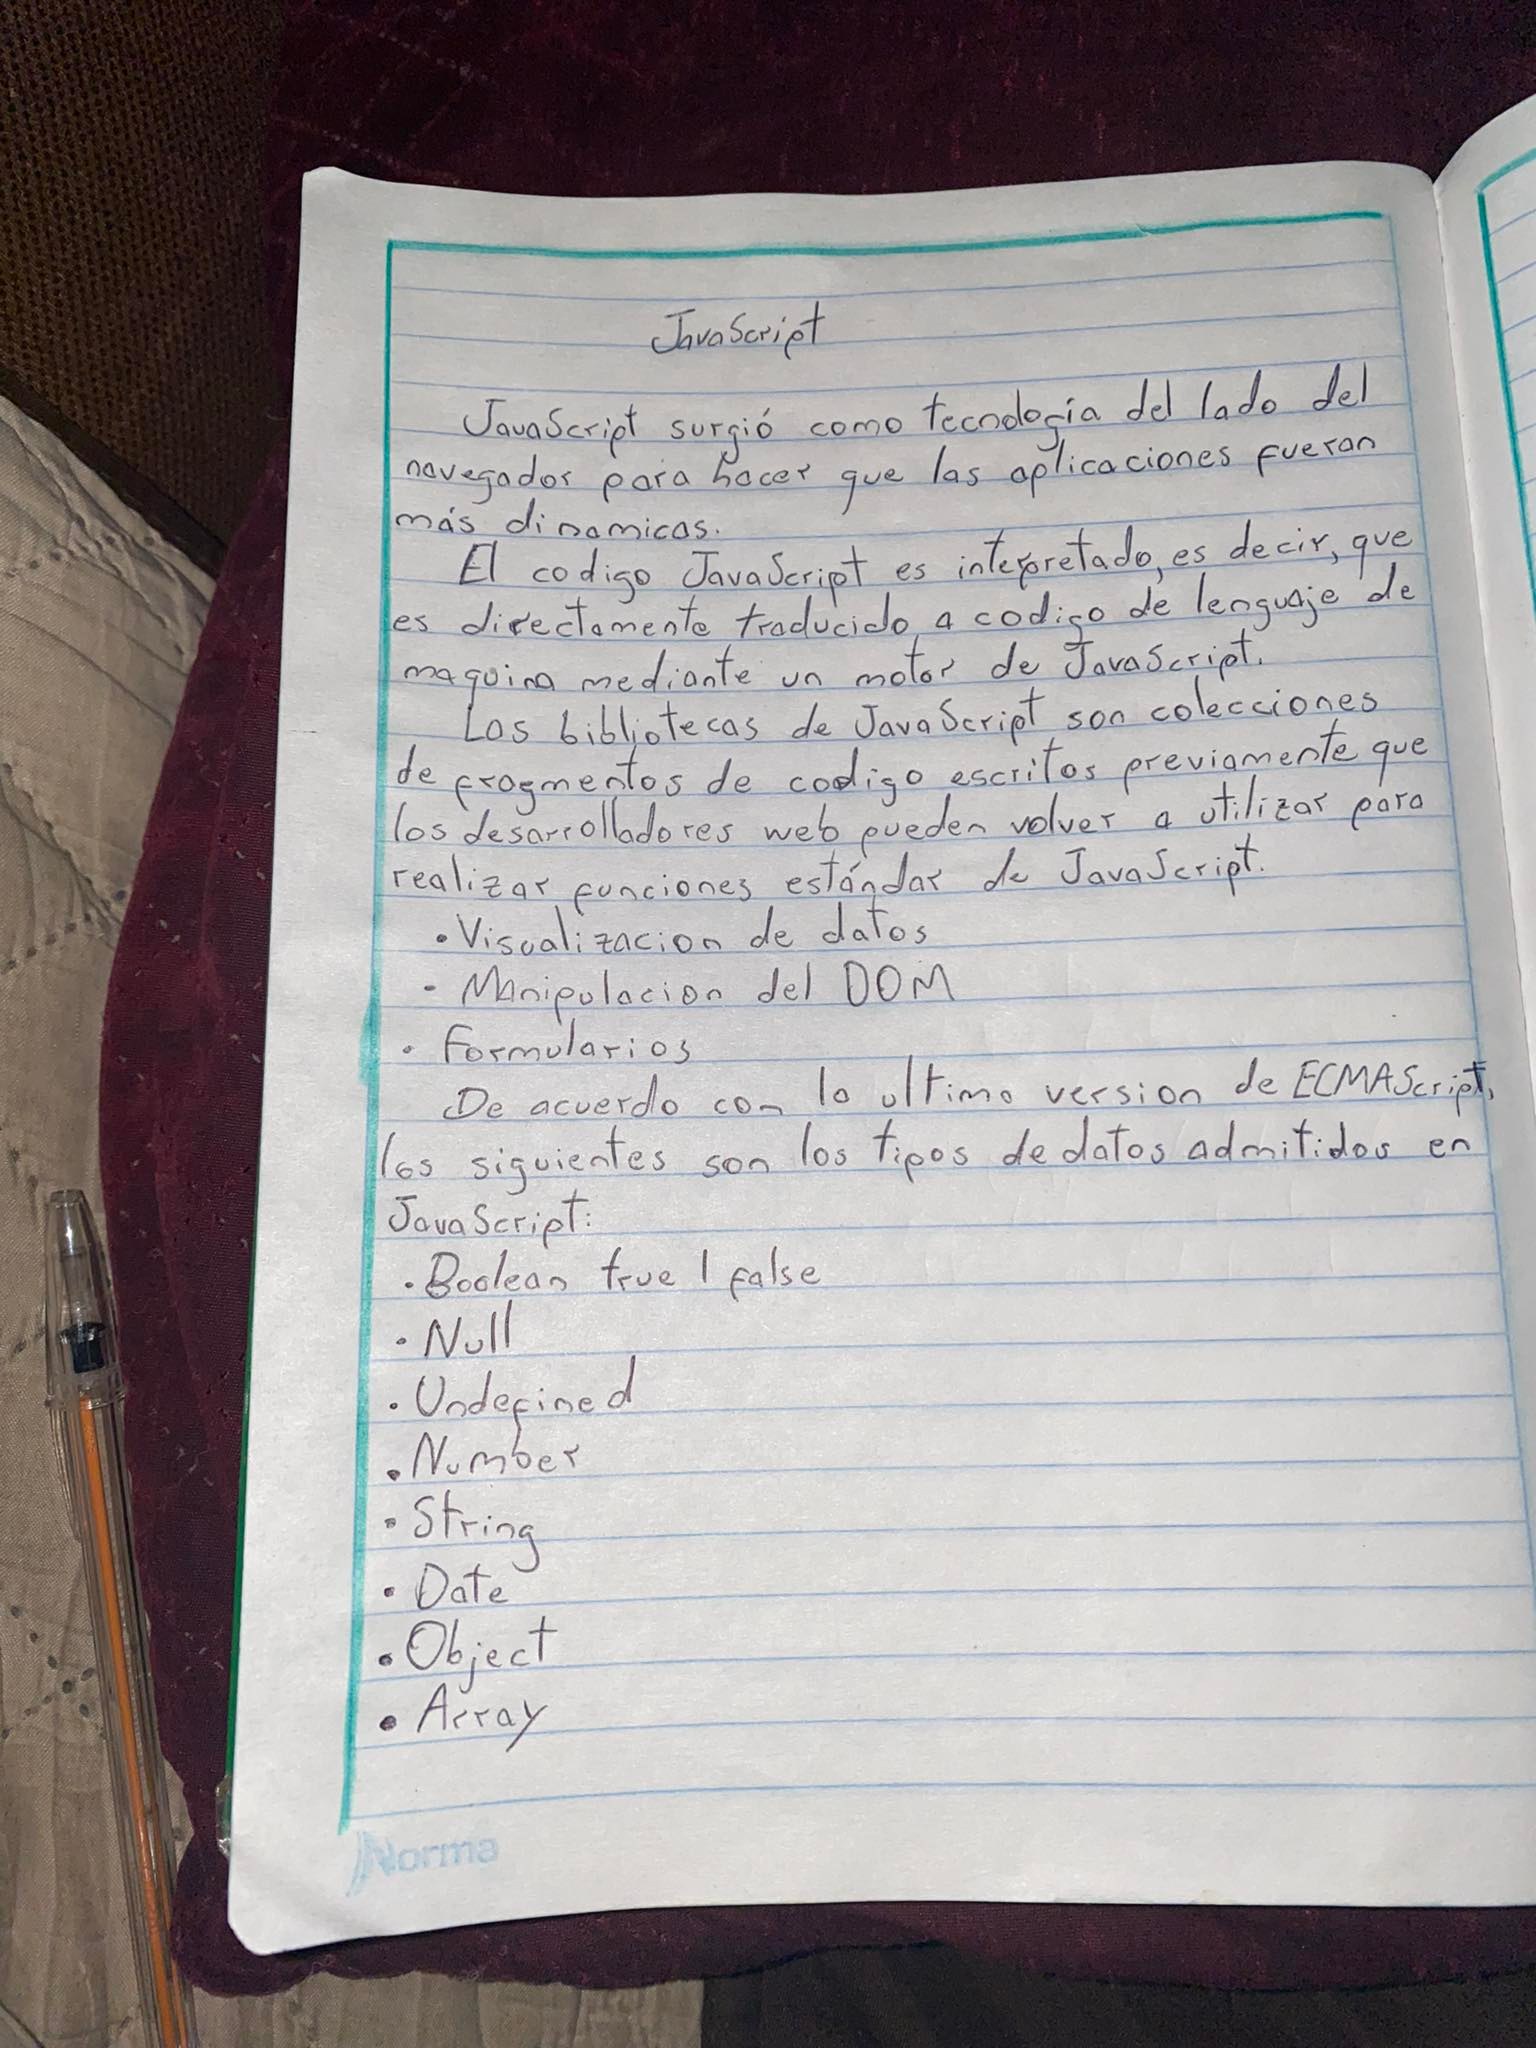 JavaScript
JavaScript surgió como tecnología del lado del
navegador para hacer que las aplicaciones fueran
más dinamicas.
El codigo JavaScript es interpretado, es decir, que
es directamente traducido a codigo de lenguaje de
maquina mediante un motor de JavaScript.
Las bibliotecas de JavaScript son colecciones
de fragmentos de codigo escritos previamente que
los desarrolladores web pueden volver a utilizar para
realizar funciones estándar de JavaScript.
• Visualizacion de datos
- Manipulacion del DOM
• Formularios
De acuerdo con la ultima version de ECMAScript,
los siguientes son los tipos de datos admitidos en
JavaScript:
• Boolean true | false
• Null
• Undefined
• Number
• String
• Date
• Object
• Array
Norma